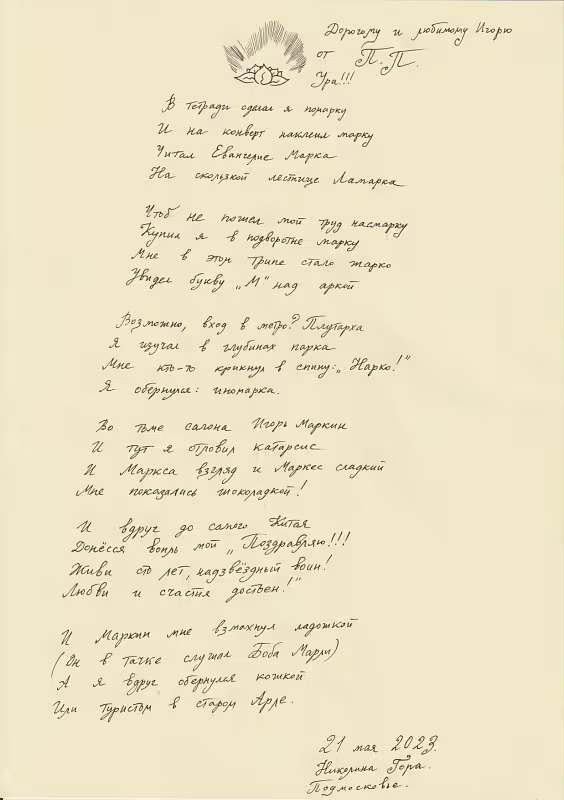 Дорогому и любимому Игорю
от П.П.
Ура!!!
В тетради сделал я помарку
И на конверт наклеил марку
Читал Евангелие Марка
На скользкой лестнице Ламарка
Чтоб не пошел мой труд насмарку
Купил я в подворотне марку
Мне в этом трипе стало жарко
Увидел букву „М" над аркой
Возможно, вход в метро? Плутарха
Я изучал в глубинах парка
Мне кто-то крикнул в спину: „Нарко!"
Я обернулся: иномарка.
Во тьме салона Игорь Маркин
И тут я отловил катарсис
И Маркса взгляд и Маркес сладкий
Мне показались шоколадкой!
И вдруг до самого Китая
Донёсся вопль мой „Поздравляю!!!
Живи сто лет, надзвёздный воин!
Любви и счастия достоен!"
И Маркин мне взмахнул ладошкой
(Он в тачке слушал Боба Марли)
А я вдруг обернулся кошкой
Или туристом в старом Арле.
21 мая 2023.
Николина Гора.
Подмосковье.